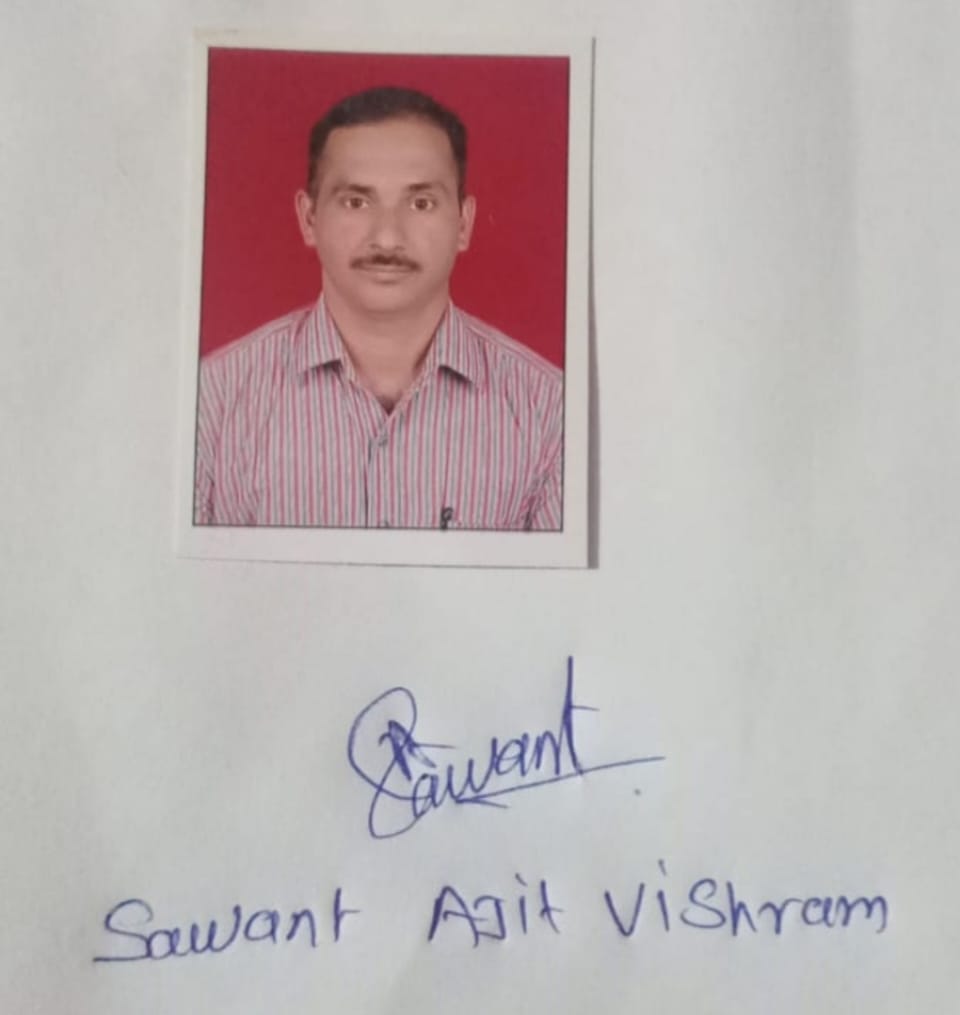 Sawant
Sawant Ajit Vishram